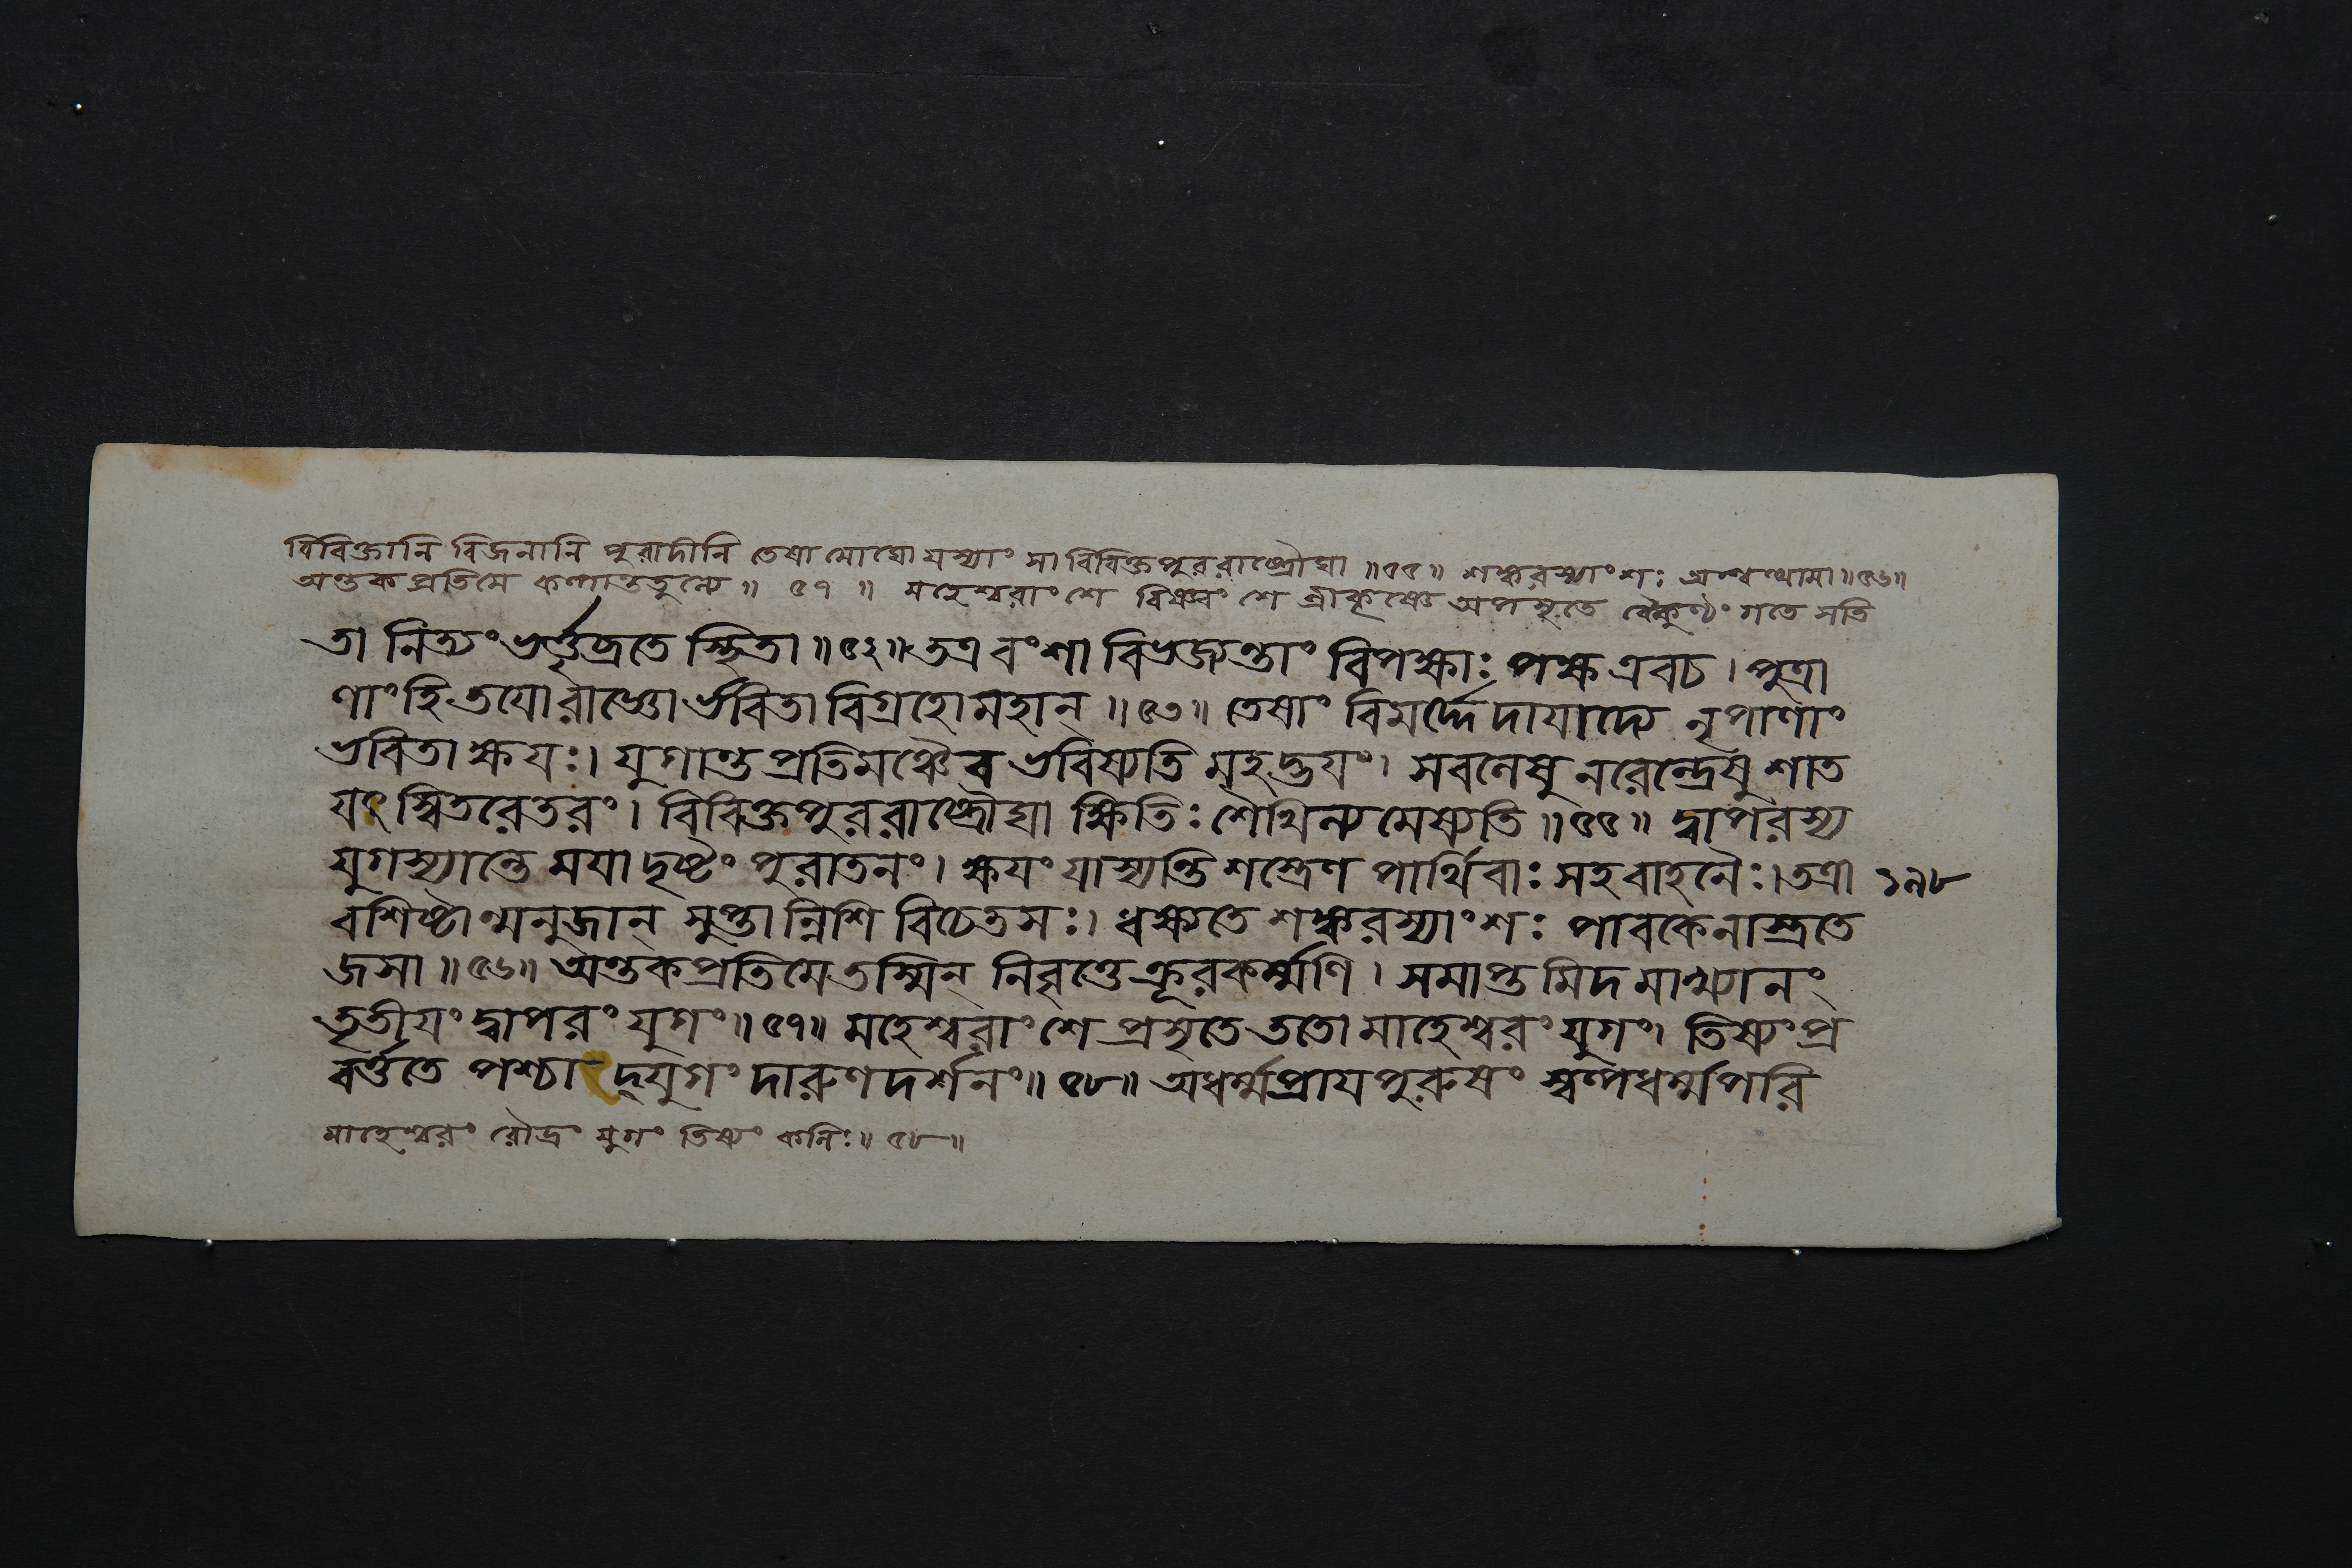 বিবিক্তানি বিজনানি পুরাদীনি তেষামোঘো যস্যাং সা বিবিক্তপুররাষ্ট্রৌঘা ॥৫৫॥ শঙ্করস্যাংশঃ অশ্বত্থামা ॥৫৬॥
অন্তকপ্রতিমে কল্পান্ততুল্যে ॥ ৫৭ ॥ মহেশ্বরাংশে বিষ্ণ্বংশে শ্রীকৃষ্ণে অপসৃতে বৈকুণ্ঠং গতে সতি
তা নিত্যং ভর্ত্তৃব্রতে স্থিতা ॥৫২॥ তত্র বংশা বিভজ্যন্তাং বিপক্ষাঃ পক্ষ এবচ । পুত্রা
ণাং হি তযো রাজ্ঞো র্ভবিতা বিগ্রহো মহান্ ॥৫৩॥ তেষাং বিমর্দ্দে দাযাদ্যে নৃপাণাং
ভবিতা ক্ষযঃ। যুগান্তপ্রতিমঞ্চৈব ভবিষ্যতি মহদ্ভযং। সবনেষু নরেন্দ্রেষু শাত
যৎস্বিতরেতরং। বিবিক্তপুররাষ্ট্রৌঘা ক্ষিতিঃ শৈথিল্যমেষ্যতি ॥৫৫॥ দ্বাপরস্য
যুগস্যান্তে মযা দৃষ্টং পুরাতনং। ক্ষযং যাস্যন্তি শস্ত্রেণ পার্থিবাঃ সহবাহনৈঃ। তত্রা ১৯৮
বশিষ্টান্মনুজান্ সুপ্তান্নিশি বিচেতসঃ। ধক্ষ্যতে শঙ্করস্যাংশঃ পাবকেনাস্ত্রতে
জসা ॥৫৬॥ অন্তকপ্রতিমে তস্মিন্ নিবৃত্তে ক্রূরকর্ম্মণি । সমাপ্তমিদমাখ্যানং
তৃতীযং দ্বাপরং যুগং ॥৫৭॥ মহেশ্বরাংশে প্রসৃতে ততো মাহেশ্বরং যুগং। তিষ্যং প্র
বর্ত্ততে পশ্চাদ্যুগং দারুণদর্শনং ॥৫৮॥ অধর্ম্মপ্রাযপুরুষং স্বল্পধর্ম্মপরি
মাহেশ্বরং রৌদ্রং যুগং তিষ্যং কলিঃ ॥ ৫৮ ॥